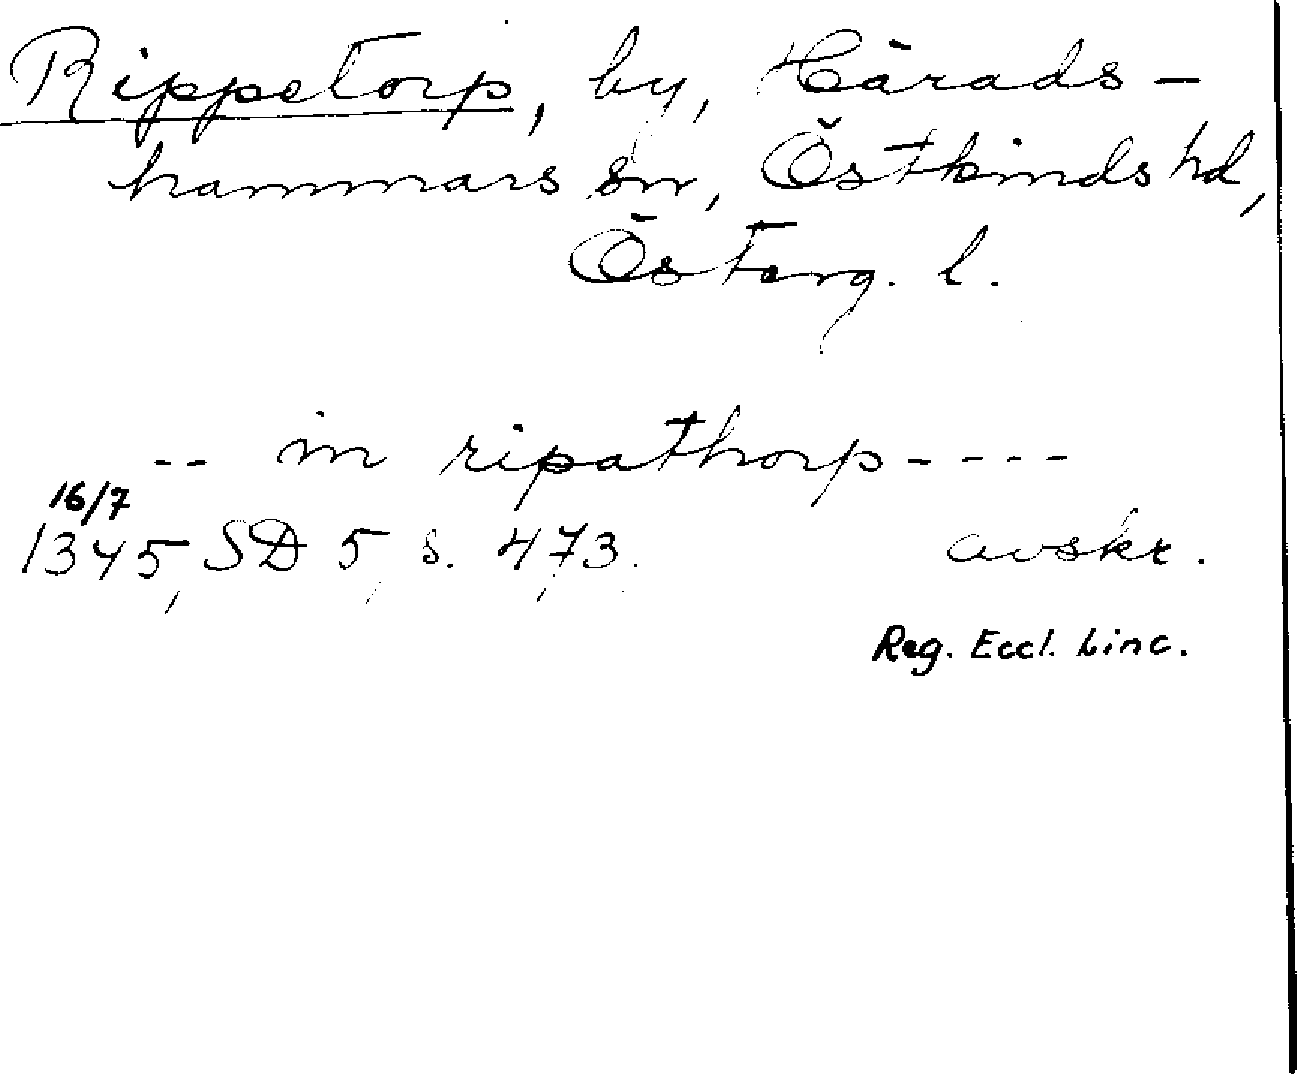 Rippetorp, by, Härads-
hammars sn, Östkinds hd,
Österg. l.
-- in ripathorp ----
16/7
1345, SD 5, s. 473. avskr.
Reg. Eccl. Linc.